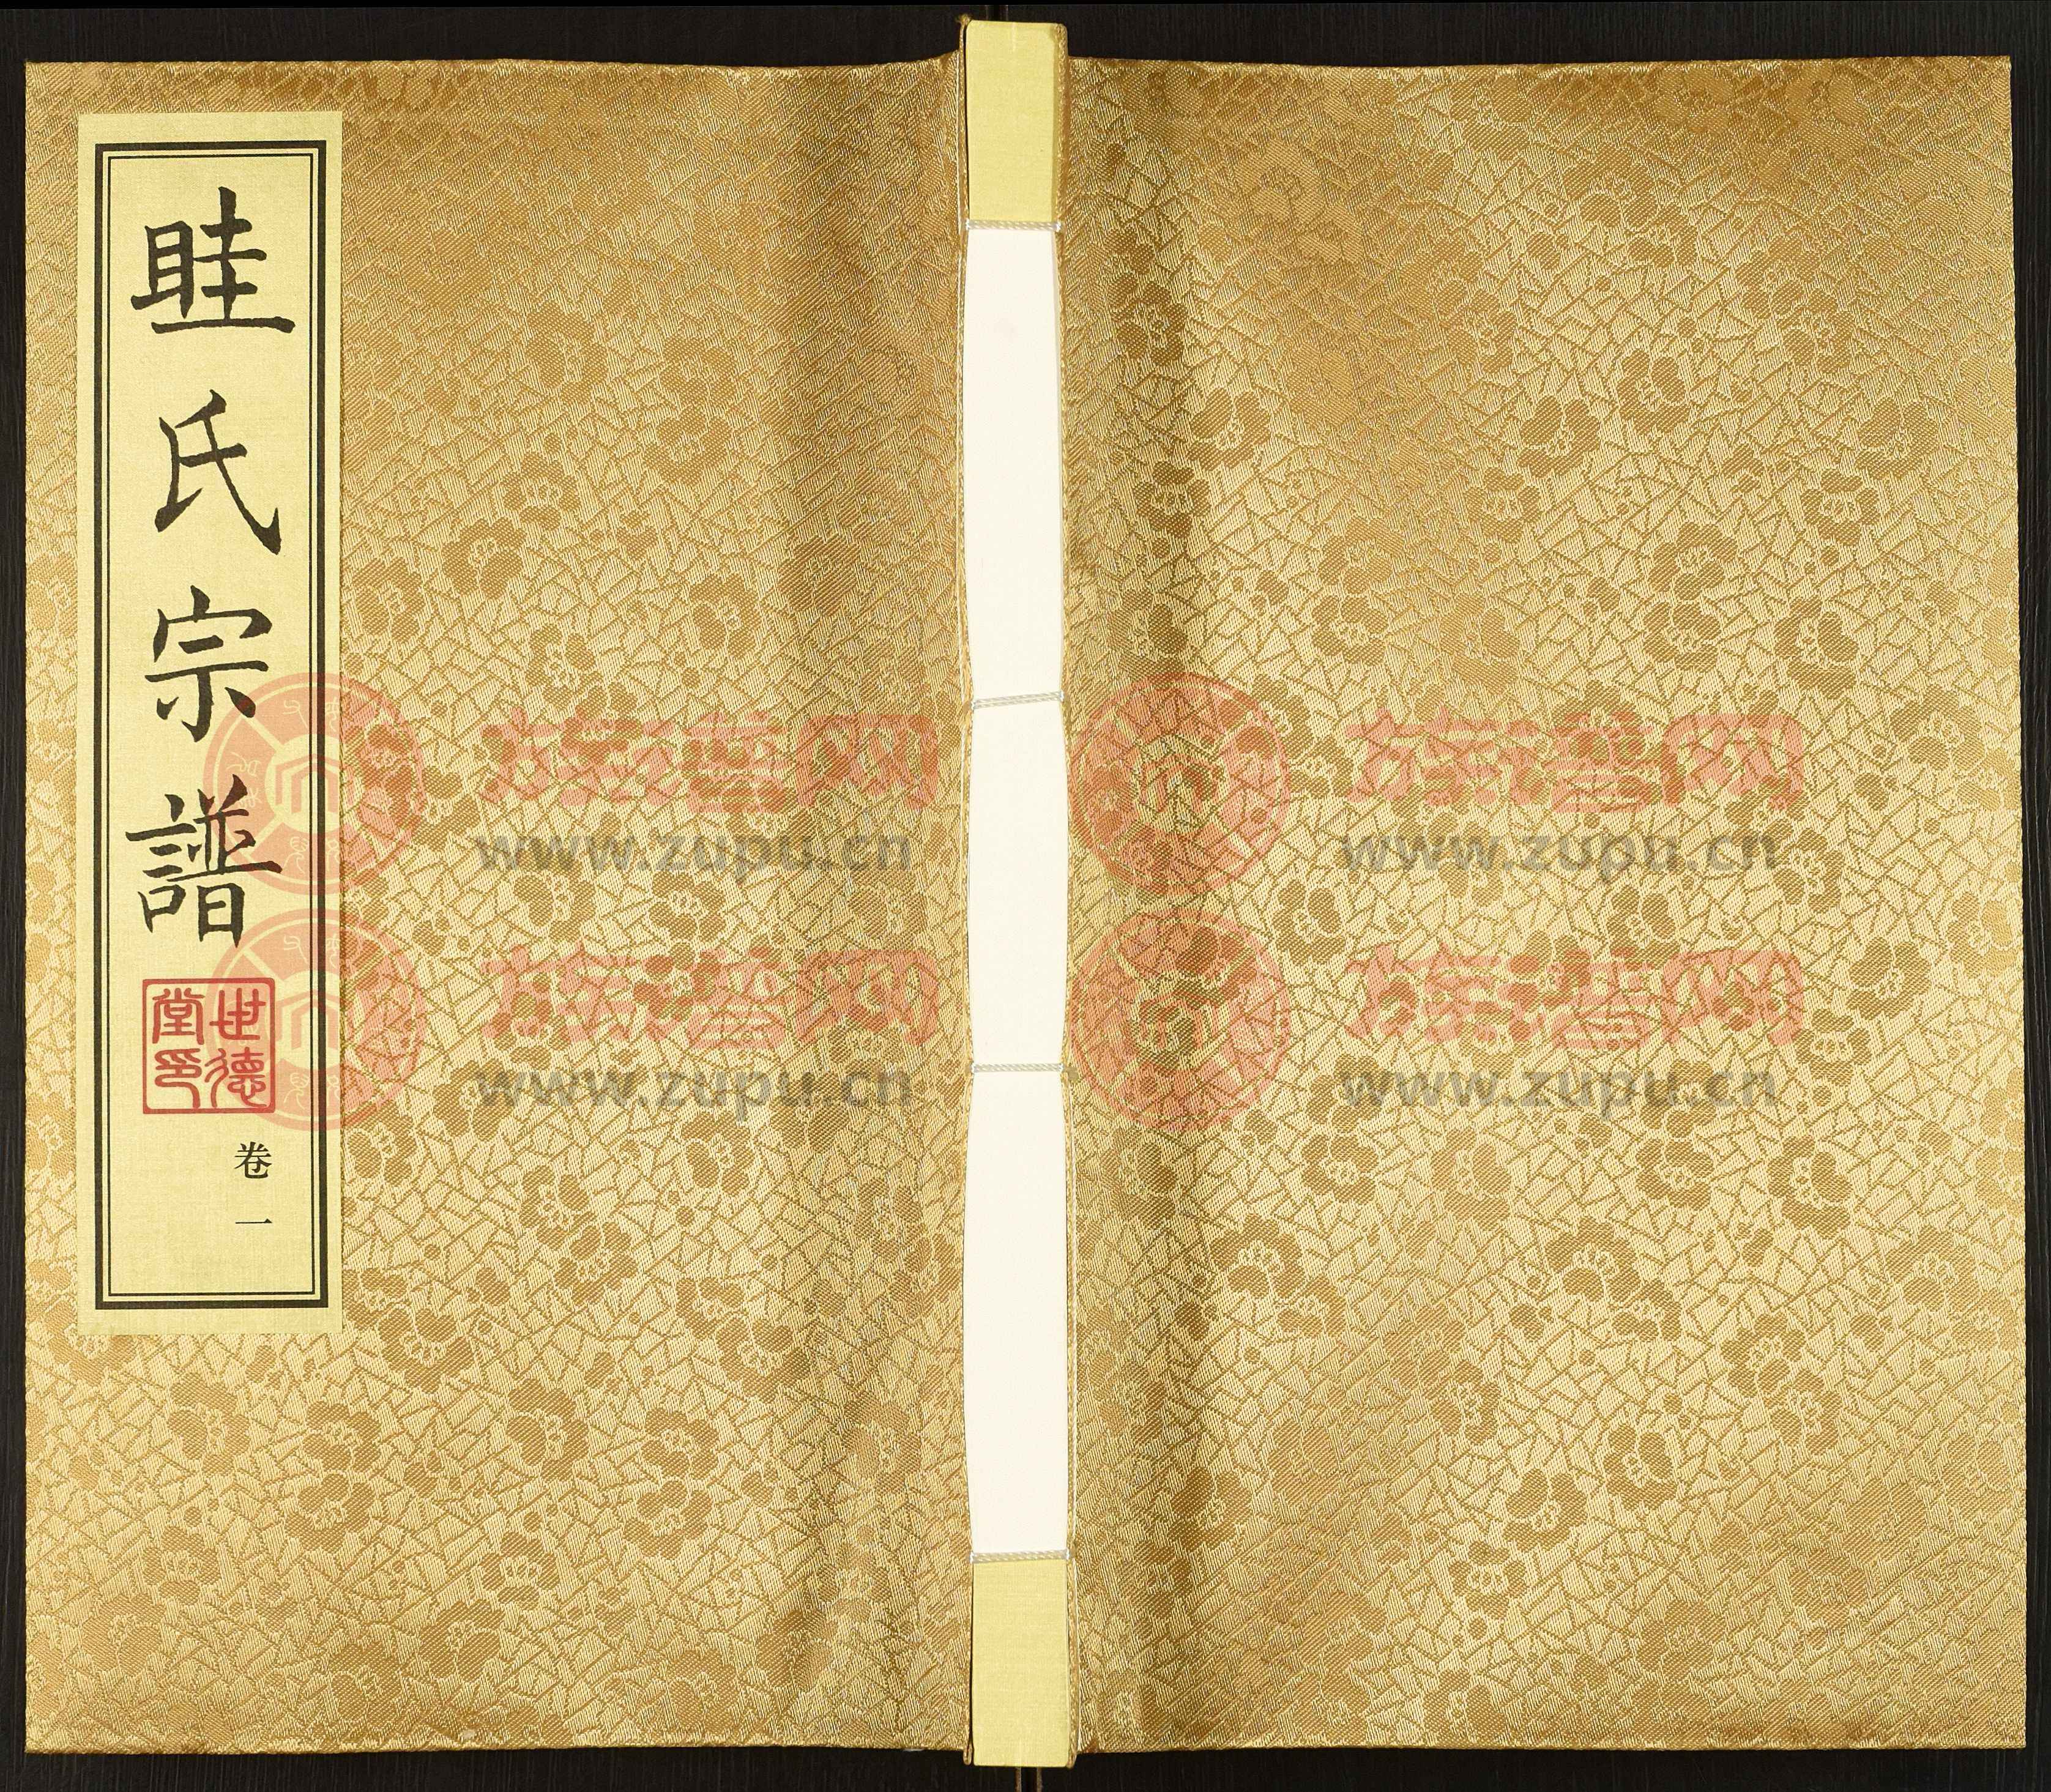 眭氏宗譜
世德堂印
卷一
族谱网
www.zupu.cn
族谱网
www.zupu.cn
族谱网
www.zupu.cn
族谱网
www.zupu.cn